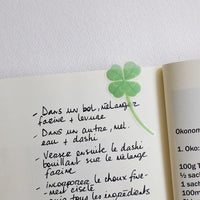 - Dans un bol, mélanger
farine + levure
- Dans un autre, mel.
eau + dashi
- Verser ensuite le dashi
bouillant sur le mélange
farine
- incorporer le choux fine-
ment ciselé
tous les ingrédients
Okonom
1. Oko:
100g T
½ sach
1 sach
100m